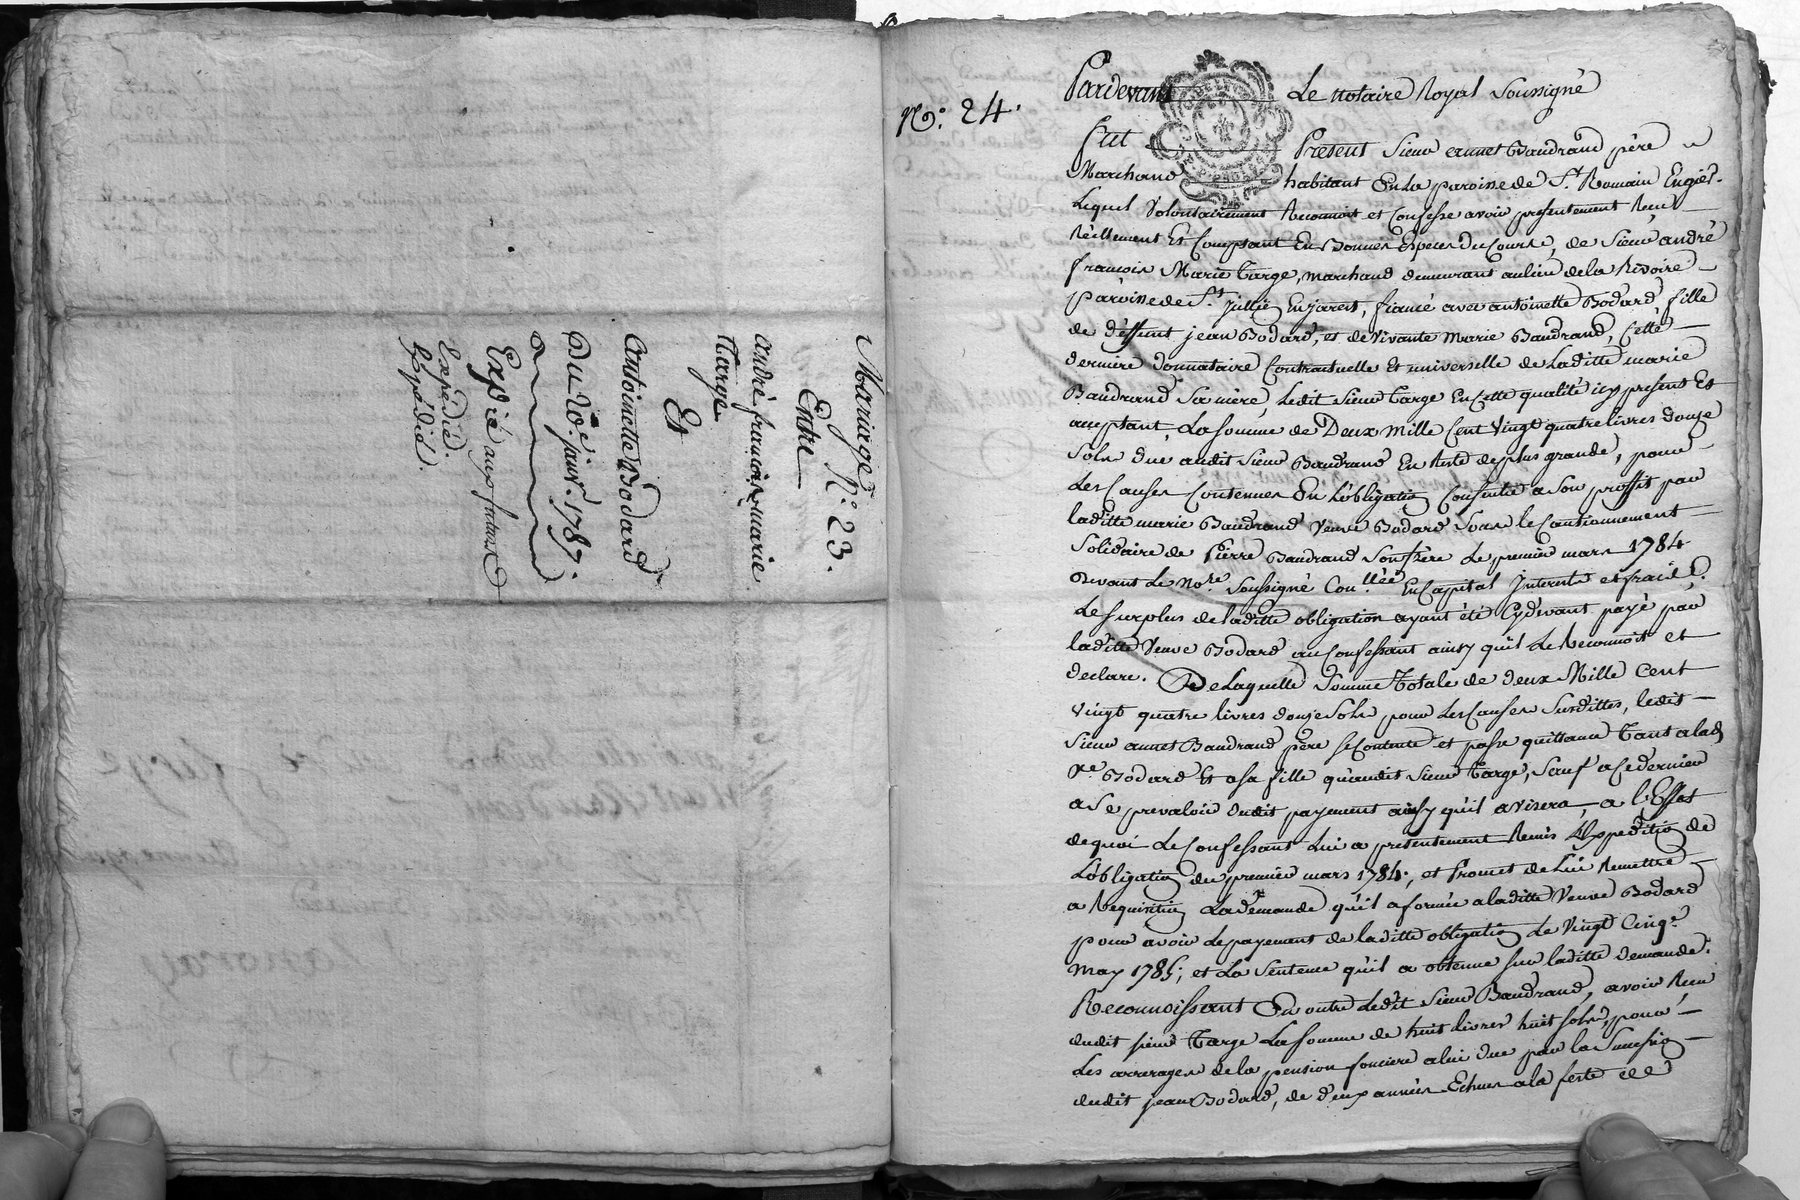 Mariage N.° 23.
Entre
andré francois marie
Targe
Et
antoinette Bodard
Du 20.e janv. 1787.
Expié aux futurs
Expédié.
Expédié.
N.° 24.
Pardevant Le notaire Royal Soussigné
fut Present Sieur annet Baudrand père
Marchand habitant En La paroisse de St. Romain Engiest.
Lequel Volontairement Reconnoit et Confesse avoir presentement Reçu
Réellement Et Comptant En Bonnes Especes du Cours, de Sieur andré
francois Marie Targe, marchand demeurant au lieu de la Rivoire
paroisse de St. Jullien En jarest, fiancé avec antoinette Bodard, fille
de déffunt jean Bodard, et de Vivante Marie Baudrand, Cette
derniere donnataire Contractuelle Et universelle de Laditte marie
Baudrand Sa mère, Ledit Sieur Targe En Cette qualité icy present Et
acceptant, La somme de Deux Mille Cent Vingt quatre livres douze
Sols due audit Sieur Baudrand En Reste de plus grande, pour
Les Causes Contenues En L'obligation Consentie a Son proffit par
laditte marie Baudrand Veuve Bodard Sous le Cautionnement
Solidaire de Pierre Baudrand Son frère Le premier mars 1784
devant Le No.re Soussigné Con.llée En Capital Interests et fraix,
Le surplus de laditte obligation ayant été Cydevant payé par
laditte Veuve Bodard au Confessant ainsy qu'il Le Reconnoit et
declare. De Laquelle Somme Totale de deux Mille Cent
Vingt quatre livres douze Sols pour Les Causes Susdittes, ledit
Sieur annet Baudrand père se Contente et passe quittance Tant a lad.
Ve. Bodard Et a sa fille qu'audit Sieur Targe, Sauf a Ce dernier
a Se prevaloir dudit payement ainsy qu'il avisera, a l'Effet
de quoi Le Confessant Lui a presentement Remis L'Expedition de
L'obligation du premier mars 1784, et Promet de Lui Remettre
a Requisition La demande qu'il a formée a laditte Veuve Bodard
pour avoir le payement de laditte obligation Le Vingt Cinq.e
May 1785; et La Sentence qu'il a obtenue sur laditte demande.
Reconnoissant En outre Ledit Sieur Baudrand, avoir Reçu
dudit sieur Targe La somme de huit livres huit sols, pour
Les arrerages de la pension fonciere a lui due par la Succession
dudit jean Bodard, de deux années Echues a la feste de